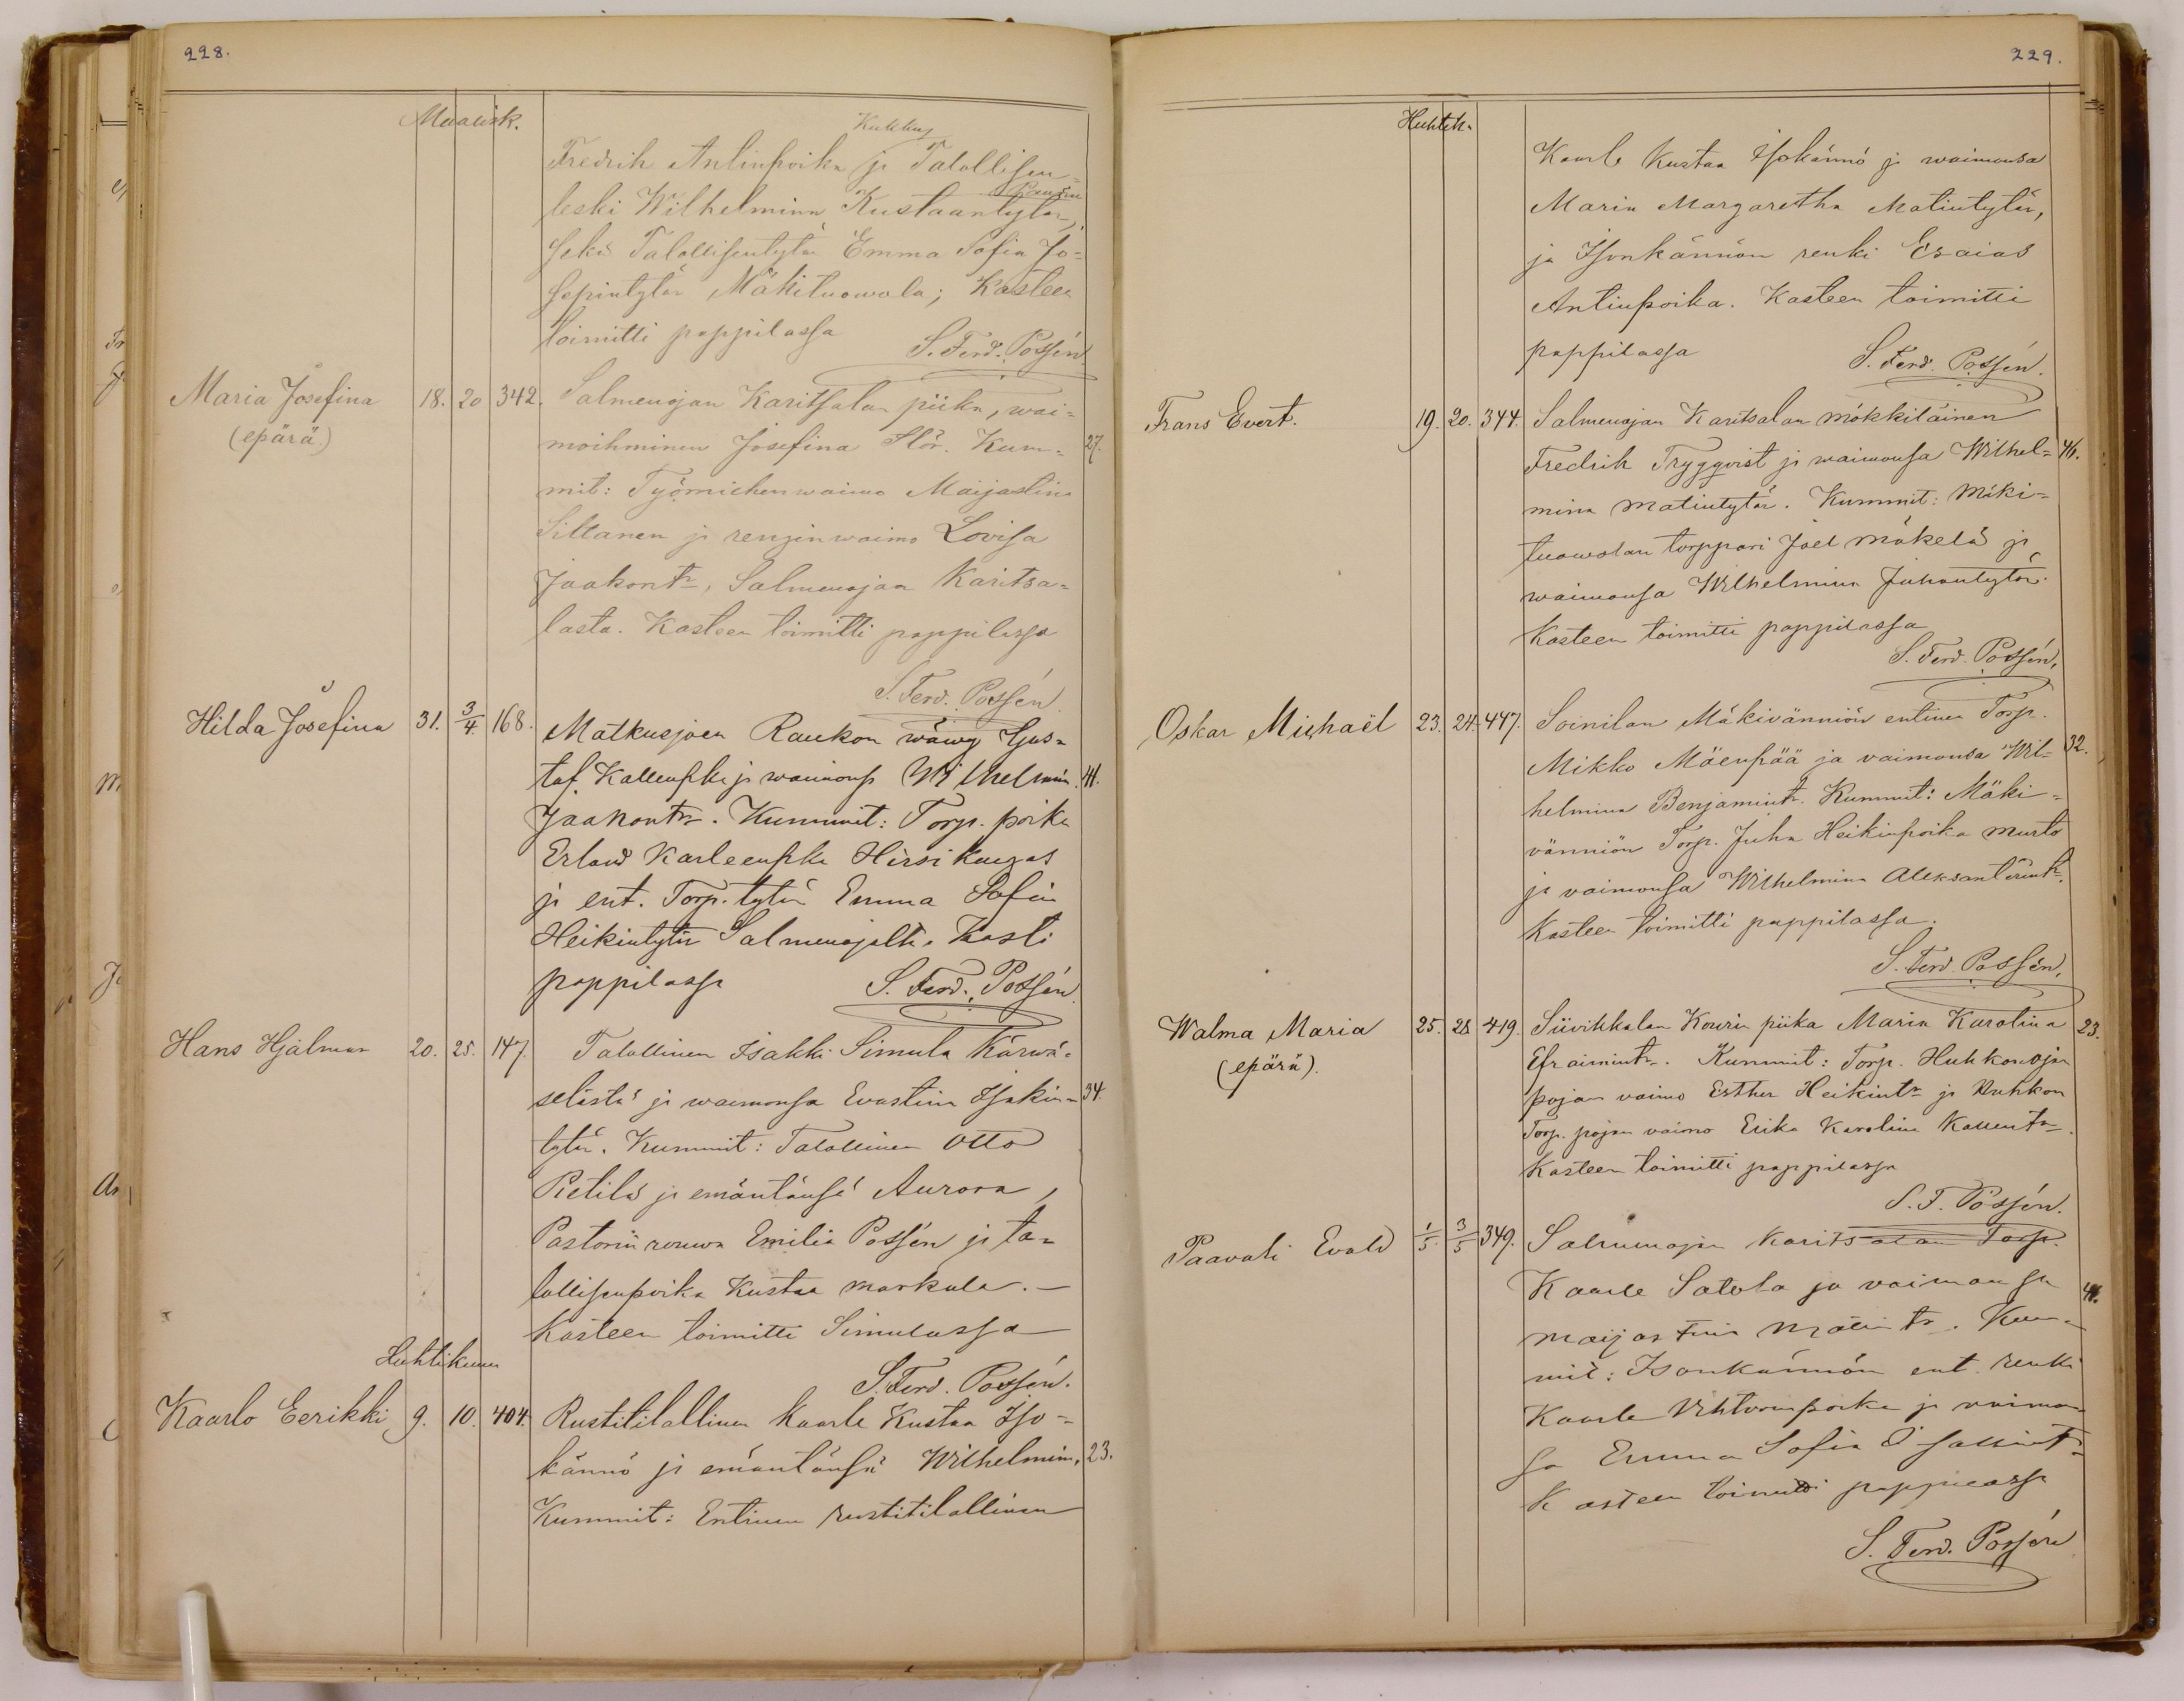 228.
Maalisk.
Kukkus
Fredrik Antinpoika ja Talollisen=
leski Wilhelmina Kustaantytär,
sekä Talollisentytär Emma Sofia Jo=
sepintytär Mäkituowola; Kasteen
toimitti pappilassa S. Ferd. Possén
Maria Josefina 18. 20 342. Salmenojan Karitsalan piika, wai=
(epärä) moihminen Josefina Slör. Kum= 27.
mit: Työmiehenwaimo Maijastina
Siltanen ja renginwaimo Lovisa
Jaakontr, Salmenojan Karitsa=
lasta. Kasteen toimitti pappilassa
S. Ferd. Possén
Hilda Josefina 31. 3/4. 168. Matkusjoen Raukon wäwy Gus=
taf Kallenpka ja waimonsa Wilhelmin. 41.
Jaakontr. Kummit: Torp. poika
Erland Karleenpka Hirsikangas
ja ent. Torp. tytär Emma Sofia
Heikintytär Salmenojalta. Kasti
pappilassa S. Ferd. Possén
Hans Hjalmar 20. 25. 147. Talollinen Isakki Simula Kärwä=
selästä ja waimonsa Evastina Isakin= 34.
tytär. Kummit: Talollinen Otto
Pietilä ja emäntänsä Aurora,
Pastorin rouwa Emilia Possén ja ta=
lollisenpoika Kustaa Markula. —
Kasteen toimitti Simulassa
Huhtikuu
S. Ferd. Possén.
Kaarlo Eerikki 9. 10. 404. Rustitilallinen Kaarle Kustaa Iso=
kännö ja emäntänsä Wilhelmin. 23.
Kummit: Entinen rustitilallinen
229.
Huhtik.
Kaarle Kustaa Isokännö ja waimonsa
Maria Margaretha Matintytär,
ja Isonkännön renki Esaias
Antinpoika. Kasteen toimitti
pappilassa S. Ferd. Possén.
Frans Evert. 19. 20. 344. Salmenojan Karitsalan mökkiläinen
Fredrik Tryggqvist ja waimonsa Wilhel= 46.
mina Matintytär. Kummit: Mäki=
tuowolan torppari Joel Mäkelä ja
waimonsa Wilhelmina Juhontytär.
Kasteen toimitti pappilassa
S. Ferd. Possén.
Oskar Michaël 23. 24. 447. Soinilan Mäkivänniön entinen Torp.
Mikko Mäenpää ja vaimonsa Wil= 32.
helmina Benjamintr. Kummit: Mäki=
vänniön Torp. Juha Heikinpoika Murto
ja vaimonsa Wilhelmina Aleksanterintr.
Kasteen toimitti pappilassa.
S. Ferd. Possén.
Walma Maria 25. 28 419. Siivikkalan Kourin piika Maria Karolina 23.
(epärä). Efraimintr. Kummit: Torp. Huhkonojan
pojan vaimo Esther Heikintr ja Huhkon
Torp. pojan vaimo Erika Karolina Kallentr.
Kasteen toimitti pappilassa
S. F. Possén.
Paavali Evald 1/5. 3/5 349. Salmenojan Karitsalan Torp.
Kaarle Satola ja vaimonsa 41.
Maijastina Kum=
mit: Isonkännön ent. renki
Kaarle Vihtorinpoika ja vaimon
sa Emma Sofia
Kasteen toimitti pappilassa
S. Ferd. Possén